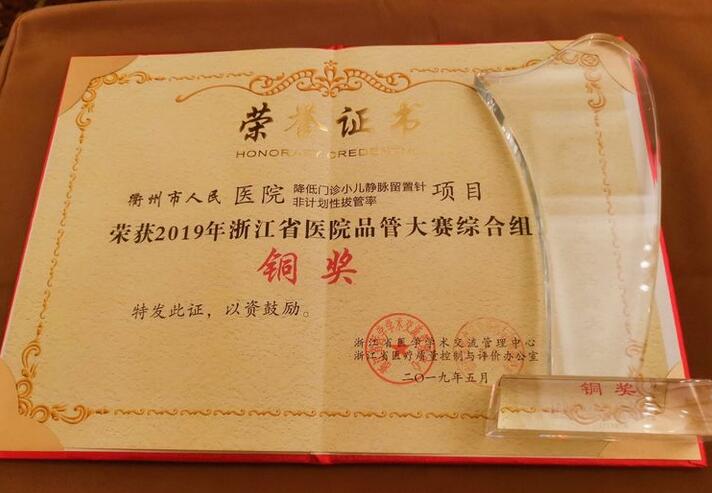 荣誉证书
HONORARY CREDENTIAL
衢州市人民医院降低门诊小儿静脉留置针非计划性拔管率项目
荣获2019年浙江省医院品管大赛综合组
铜奖
特发此证，以资鼓励。
浙江省医学学术交流管理中心
浙江省医疗质量控制与评价办公室
二〇一九年五月
铜奖